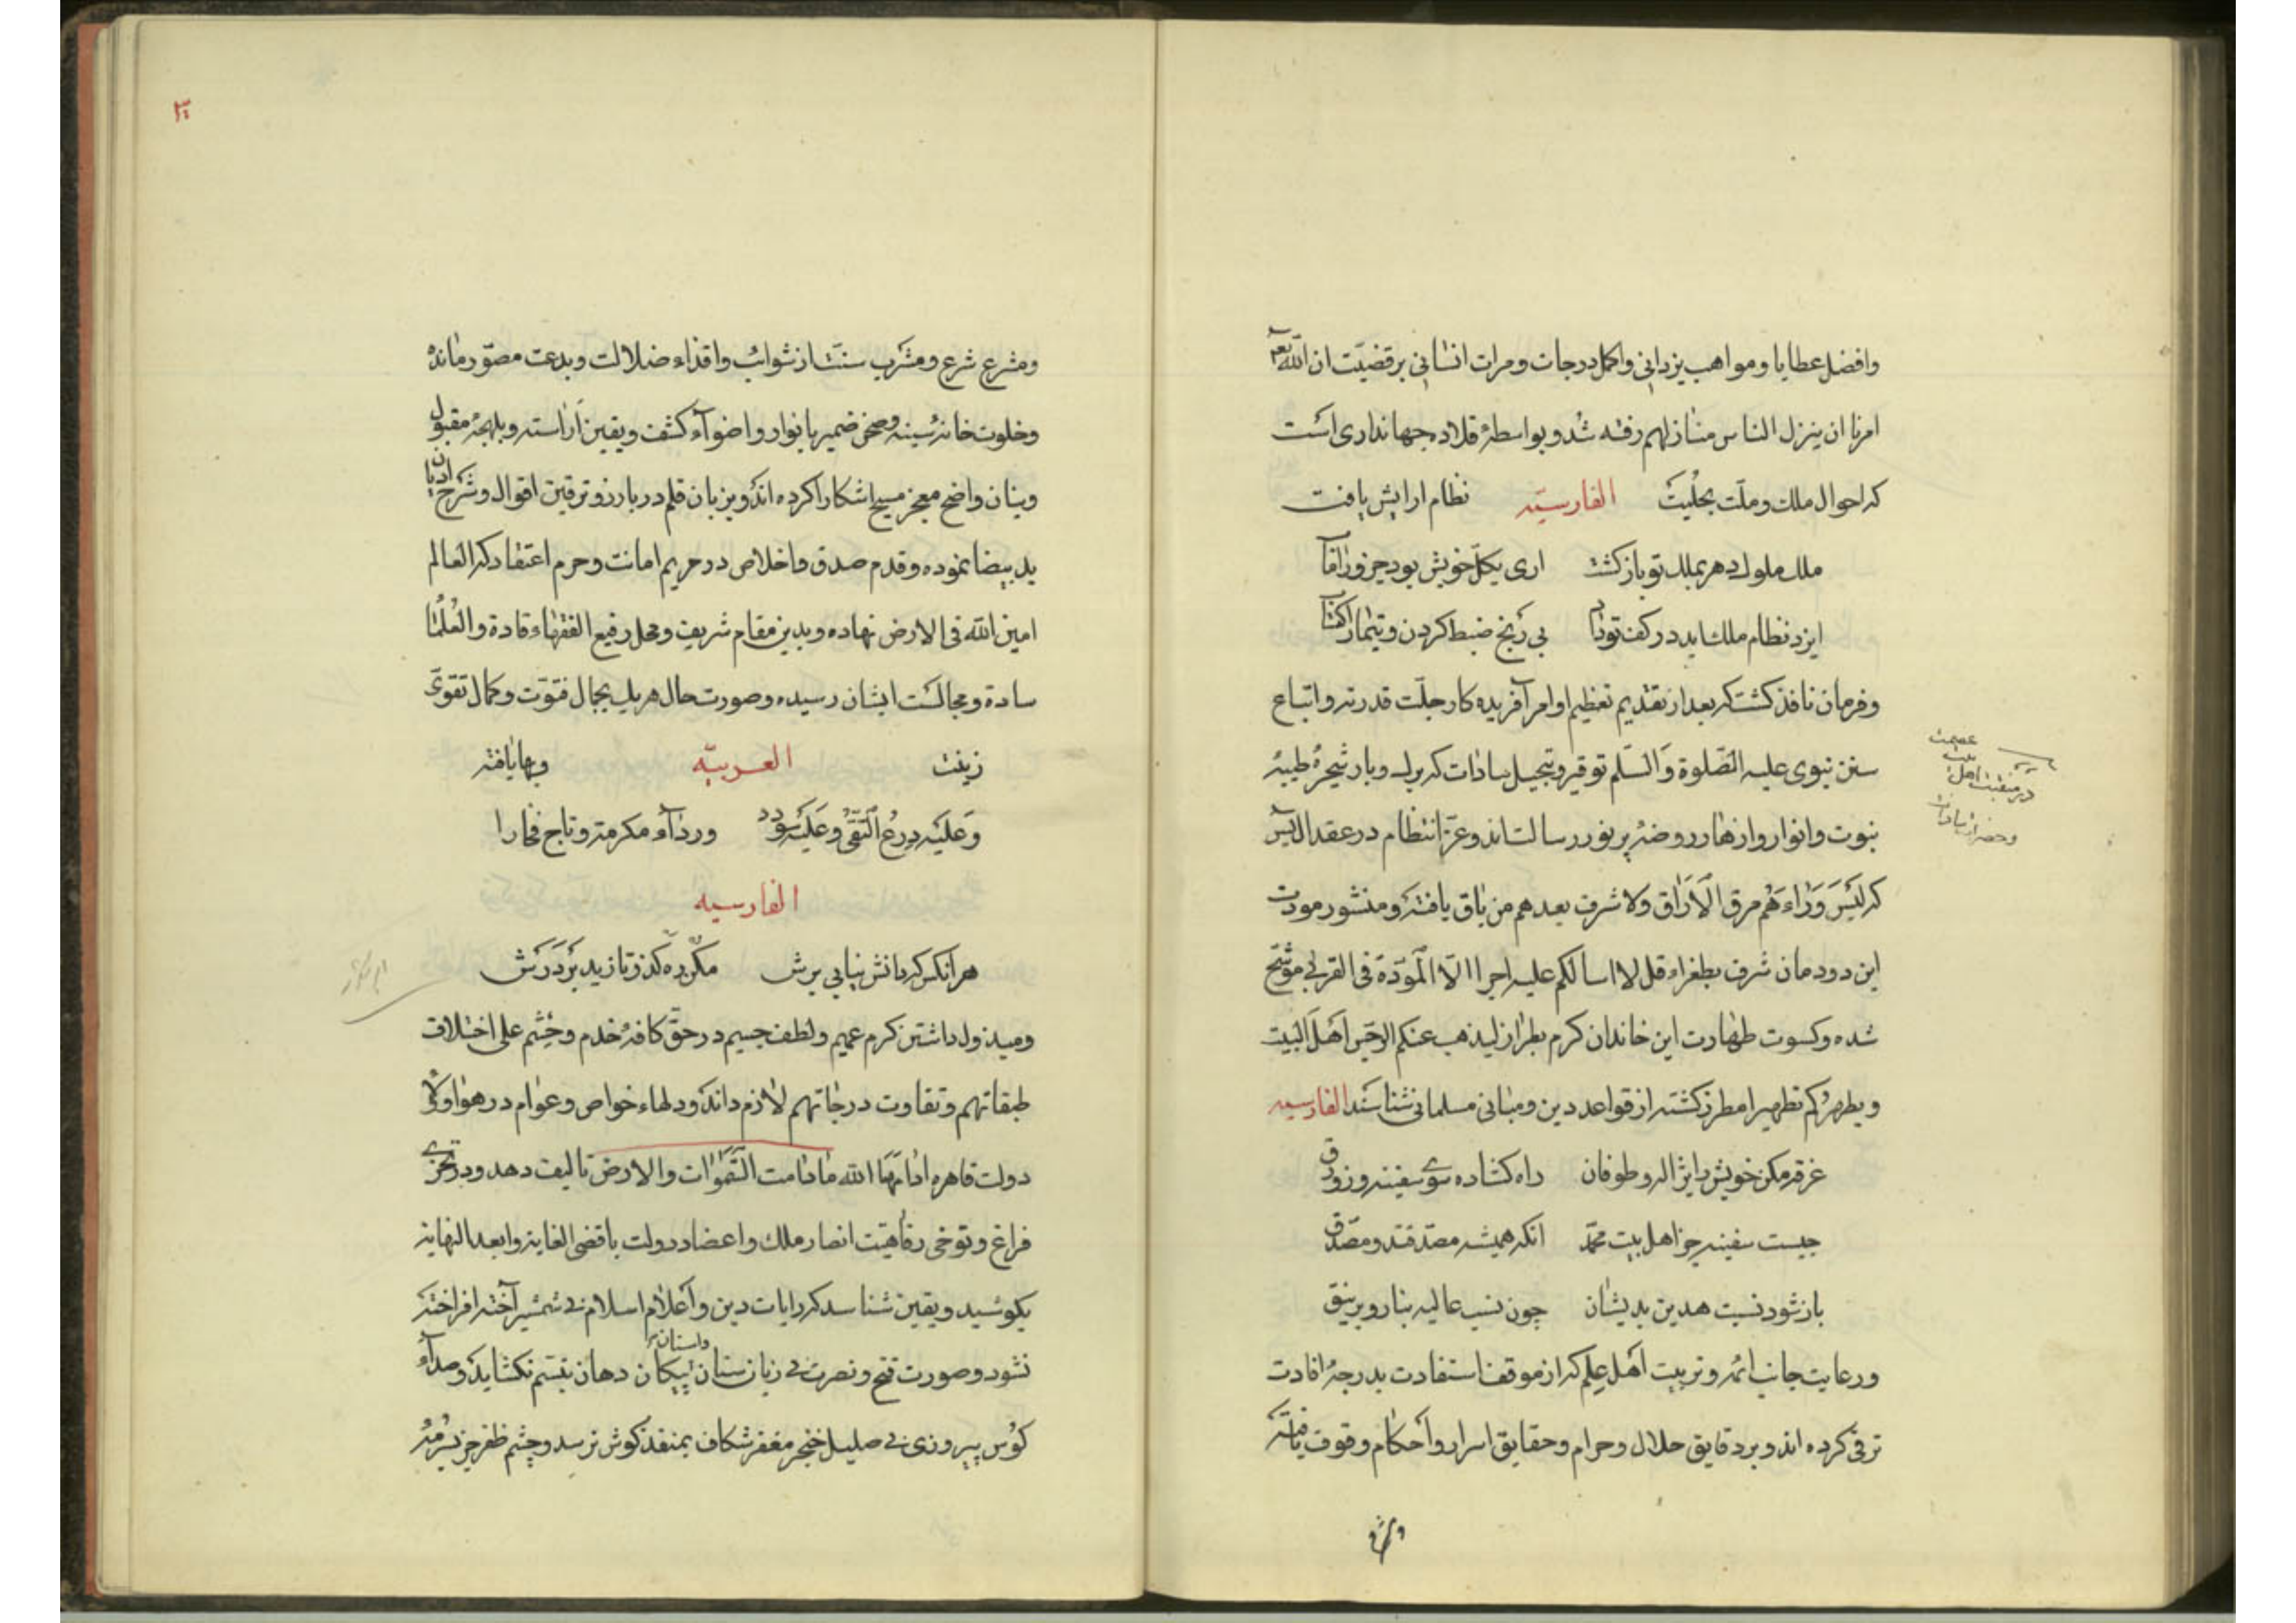 وافضل عطایا ومواهب یزدانی واکمل درجات ومرات انسانی برقضیت ان الله تع
امرنا ان ینزل الناس منازلهم رفته شد و بواسطهٔ قلاده جهانداری است
که احوال ملک و ملت بحلیت الفارسیّه نظام ارایش یافت
ملک ملوک دهر بملک تو بازکشت اری بکل خویش بود جزو رامآب
ایزد نظام ملک ابد در کف تو داد بی رنج ضبط کردن و تیمار اکتساب
وفرمان نافذ کشت که بعد از تقدیم تعظیم اوامر آفریده کار جلّت قدرته و اتباع
سنن نبوی علیه الصّلوة وَالسّلم توقیر و تبجیل سادات که برک و بار شجرهٔ طیبه
نبوت و انوار و ازهار روضهٔ پرنور رسالت اند و عزّ انتظام در عقد ال یس
که لَیْسَ وَرَاءَهُم مرق لاراق ولا شرف بعدهم من باق یافته و منشور مودت
این دودمان شرف بطغراء قل لا اسالکم علیه اجرا الّا المَوَدّة فی القربی موشّح
شده و کسوت طهارت این خاندان کرم بطراز لیذهب عنکم الرجس اَهلَ البَیت
و یطهرکم تطهیرا مطرز کشته از قواعد دین و مبانی مسلمانی شناسند الفارسیه
غرقه مکن خویش را بژاله و طوفان راه کشاده سوی سفینه و زورق
جیست سفینه جز اهل بیت محمّد انکه همیشه مصدقند و مصدّق
باز شود نسبت هدین بدیشان چون نسب عالیه بنار و برینق
ورعایت جانب ائمه و تربیت اَهل عِلم که از موقف استفادت بدرجهٔ افادت
ترقی کرده اند و بر دقایق حلال و حرام و حقایق اسرار و اَحکام وقوف یافته
عصمت
در منقبت اهل بیت
وحضرات سادات
ومشرع شرع و مشرب سنّت از شوائب و اقذاء ضلالت و بدعت مصوّر مانده
وخلوت خانهٔ سینه و صحن ضمیر بانوار و اضوآء کشف و یقین اراسته و بلهجهٔ مقبول
وبنان واضح معجز مسیح اشکارا کرده اند و بزبان قلم در بارز و ترقین اقوال و شرح ادیان
ید بیضا نموده و قدم صدق و اخلاص در حریم امانت و حرم اعتقاد که العالم
امین الله فی الارض نهاده و بدین مقام شریف و محل رفیع الفقهاء قادة والعُلَما
سادة و مجالست ایشان رسیده و صورت حال هریک بجمال فتوّت و کمال تقوی
زینت العربیّه وبها یافته
وَعَلَیْه دِرعُ التقی وعَلیه سودد وردآء مکرمة و تاج فخارا
الفارسیه
هرانکس که دانش نیابی برش مکن ره کذر تا زید بر دَرَش
ومبذول داشتن کرم عمیم و لطف جسیم در حقّ کافهٔ خدم و حَشَم علی اختلاف
طبقاتهم و تفاوت درجاتهم لازم داند و دلهاء خواص و عوام در هوا و ولای
دولت قاهره ادامها الله مادامت السّموات والارض تالیف دهد و در تحرّی
فراغ و توخی رفاهیت انصار ملک و اعضاد دولت باقصی الغایة و ابعد النهایة
بکوشید و یقین شناسد که رایات دین و اَعلام اسلام نی شمشیر آخته افراخته
نشود و صورت فتح و نصرت نی زبان سنان پیکان دهان تبسّم نکشاید و صدآء
واستان
کوُس پیروزی نی صلیل خنجر مغفر شکاف بمنفذ کوش نرسد و چشم ظفر جز بسرمهٔ